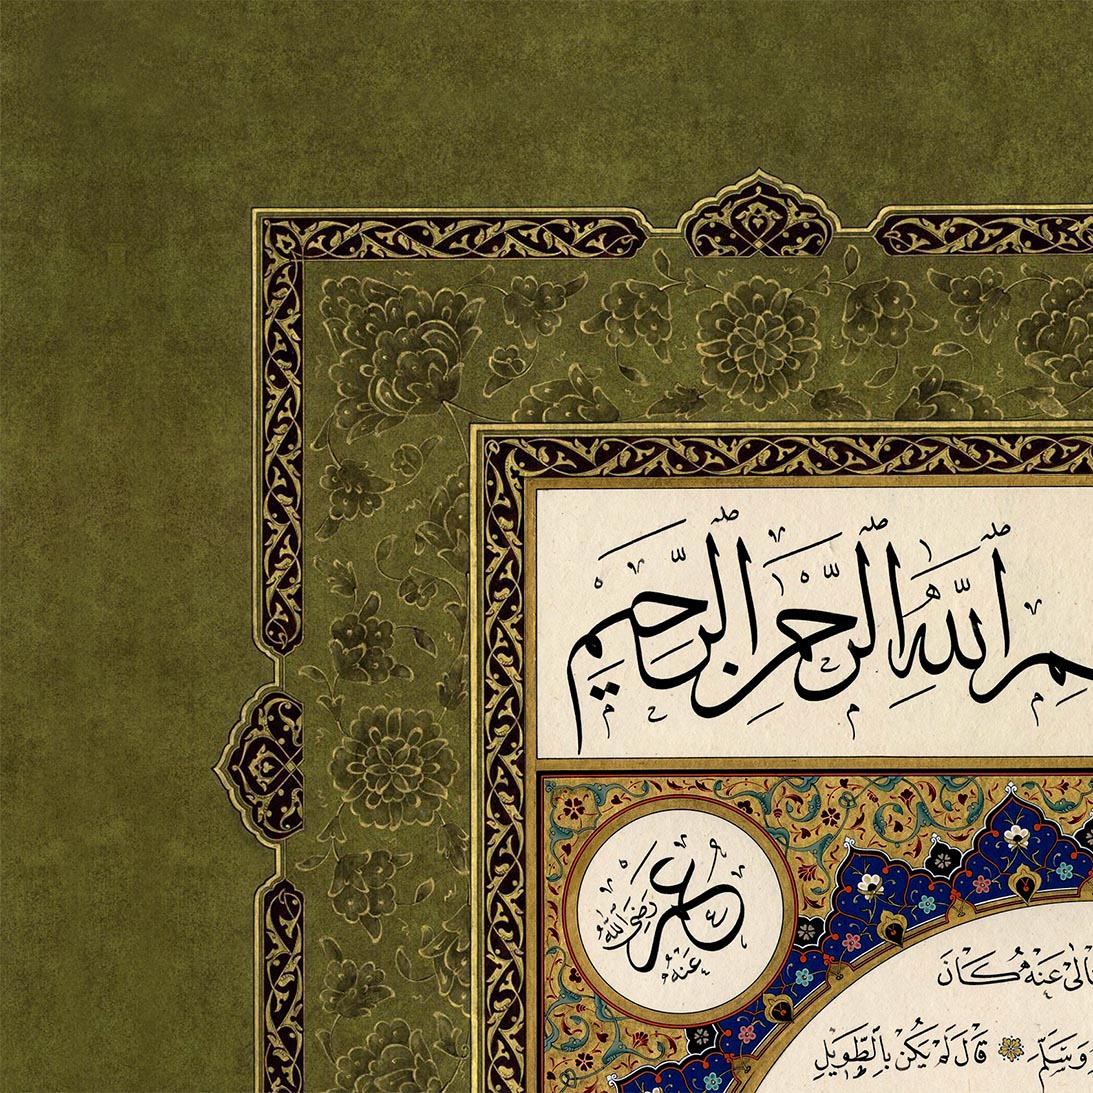 ـمِ اللّٰهِ الرَّحْمٰنِ الرَّحِيمِ
عُمَرْ رَضِيَ اللّٰهُ عَنْهُ
ـالٰى عَنْهُ كَانَ
وَسَلَّمِ قَالَ لَمْ يَكُنْ بِالطَّوِيلِ